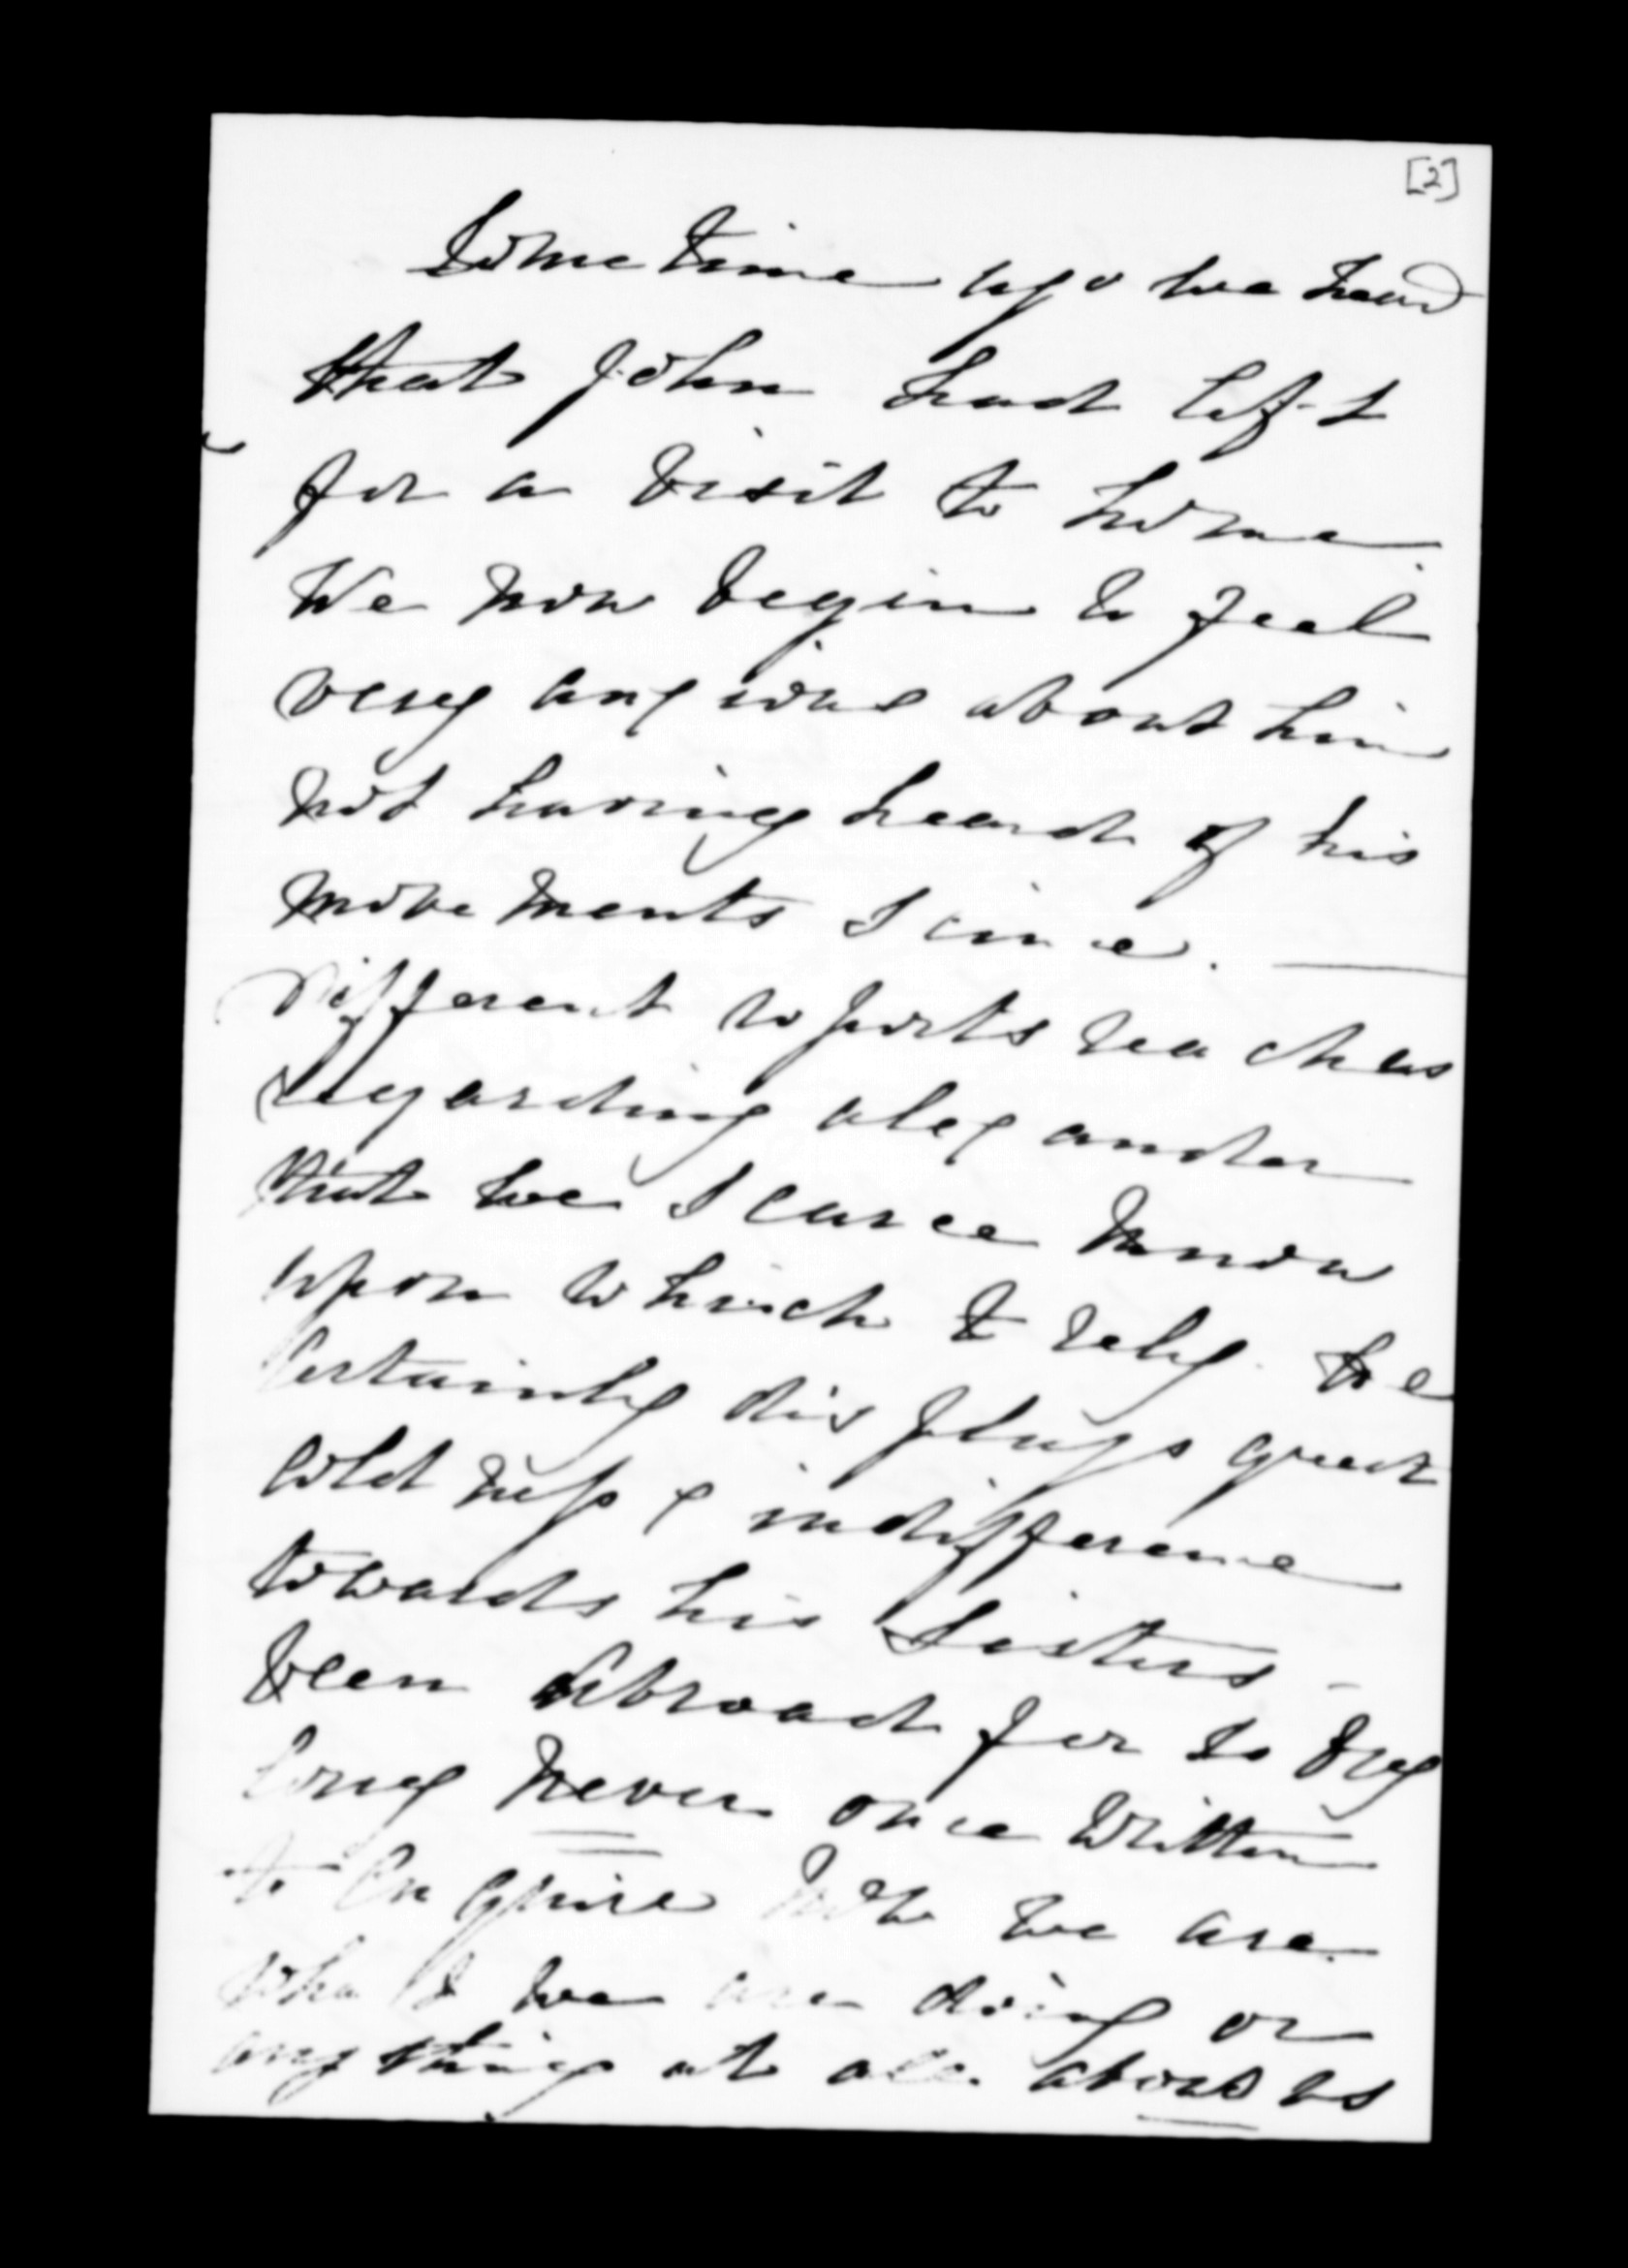 [2]
Some time ago we heard
that John had left
for a visit to home.
We now begin to feel
very anxious about him
not having heard of his
movements since. —
Different reports reach us
regarding Alexander
that we scarce know
upon which to rely. he
certainly displays great
coldness & indifference
towards his Sisters -
been abroad for so
long never once written
to enquire how we are
what we are doing or
anything at all about us